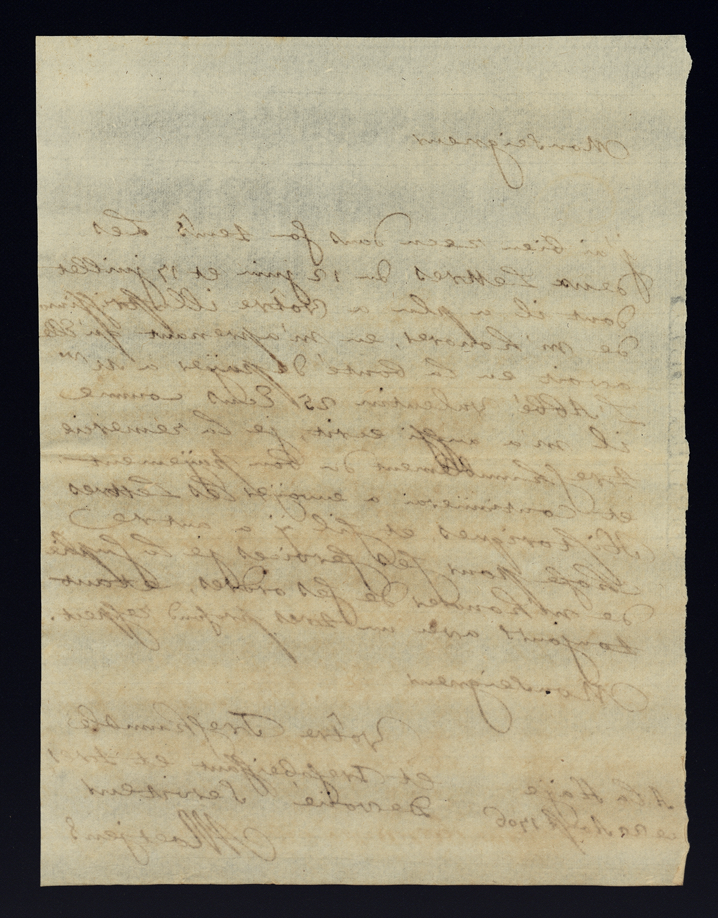 Monseigneur
j'ai bien receu dans son tems Les
deux Lettres du 12 juin et 17 juillet
dont il a plu a Votre illustrissime
de m'honorer, en m'aprenant qu'elle
avoit eu la bonté de payer a Mr.
L'Abbé Valentin 25 Ecus comme
il m'a aussi ecrit, je la remercie
tres humblement du bon payement
et continuerai a envoyer les Lettres
Historiques et s'il y a autre
chose pour ses services je la supplie
de m'honorer de ses ordres, etant
toujours avec un tres profond respect.
Monseigneur
Votre Tres humble
et Tres obeissant et tres
Devoué Serviteur
A la Haye
ce 20 1706